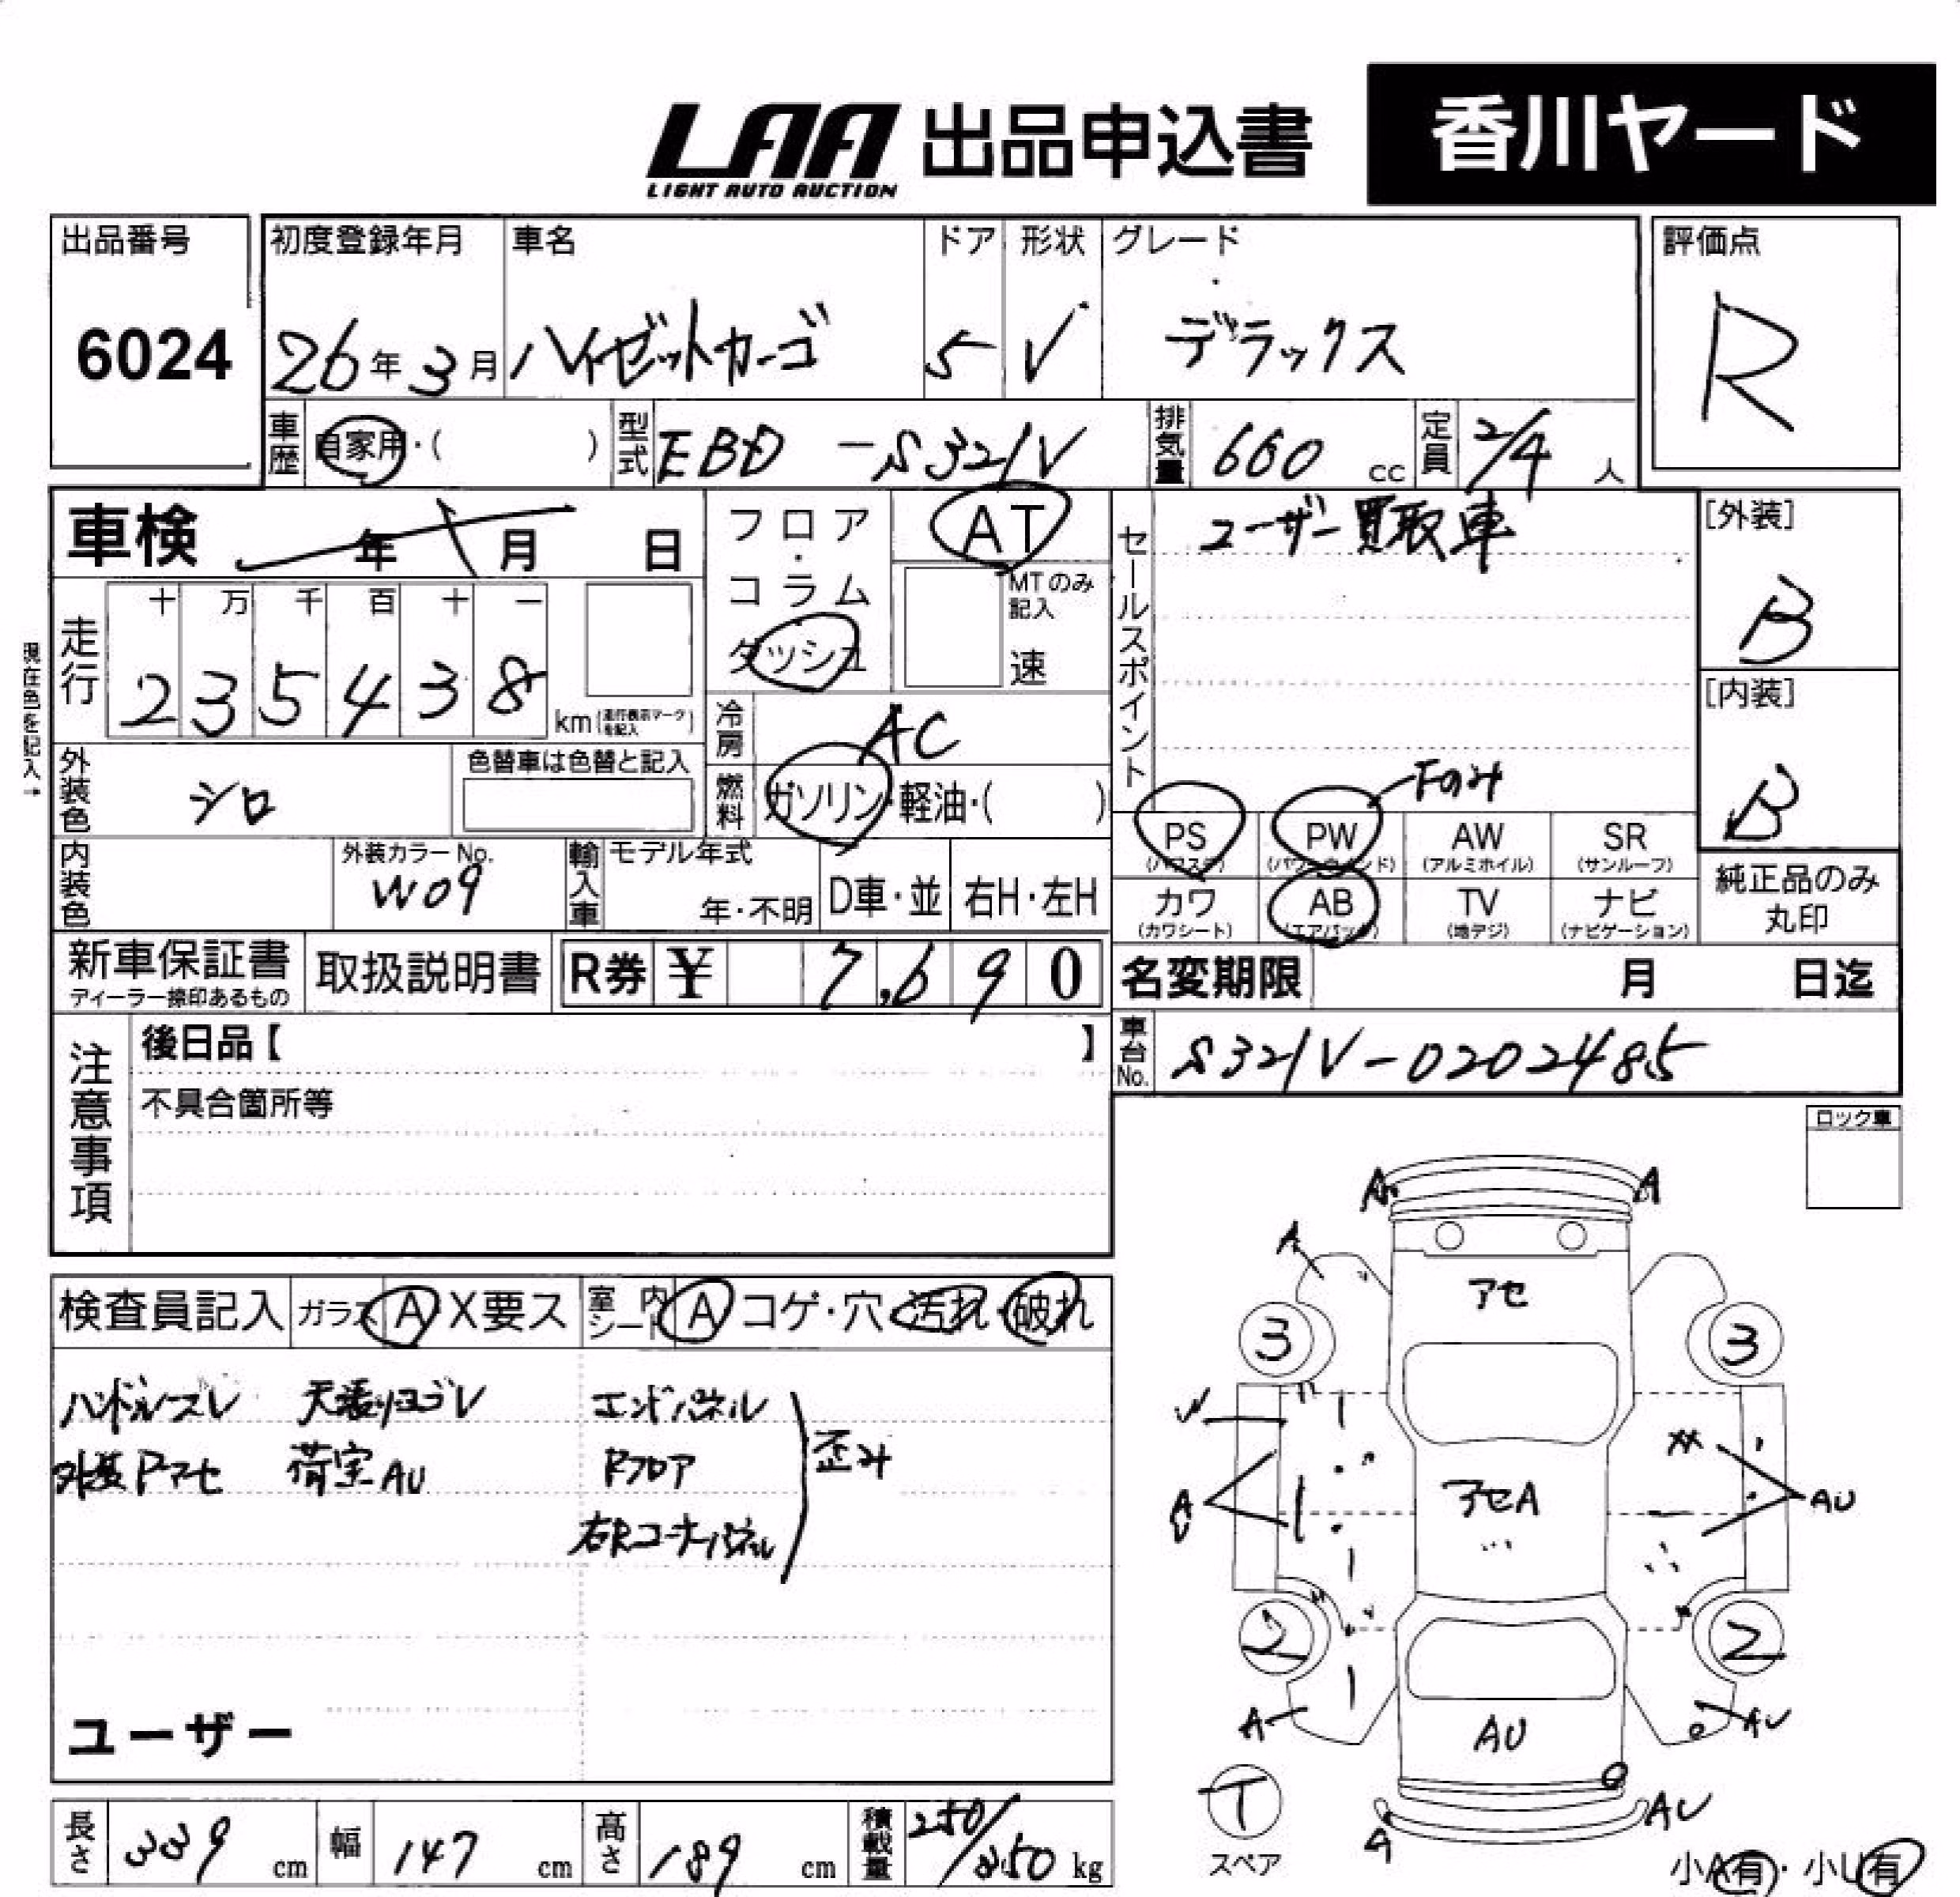 LAA 出品申込書 香川ヤード
LIGHT AUTO AUCTION
出品番号 初度登録年月 車名 ドア 形状 グレード 評価点
6024 26年3月 ハイゼットカーゴ 5 V デラックス R
車歴 自家用・( ) 型式 EBD-S321V 排気量 660 cc 定員 2/4 人
車検 年 月 日
フロア・コラム・ダッシュ
AT
MTのみ記入
速
セールスポイント
ユーザー買取車
[外装]
B
[内装]
B
現在色を記入→
走行 十 万 千 百 十 一
2 3 5 4 3 8 km (走行表示マークを記入)
冷房 AC
外装色 シロ 色替車は色替と記入
燃料 ガソリン・軽油・( )
Fのみ
PS (パワステ) PW (パワーウインド) AW (アルミホイル) SR (サンルーフ)
カワ (カワシート) AB (エアバック) TV (地デジ) ナビ (ナビゲーション)
純正品のみ
丸印
内装色 外装カラーNo. W09 輸入車 モデル年式 年・不明 D車・並 右H・左H
新車保証書 ディーラー捺印あるもの 取扱説明書 R券 ¥ 7,690
名変期限 月 日迄
車台No. S321V-0202485
注意事項
後日品【 】
不具合箇所等
ロック車
検査員記入 ガラス A X要ス 室内シート A コゲ・穴・汚れ・破れ
ハンドルスレ 天張りヨゴレ エンドパネル
外装Pアセ 荷室AU Rフロア 歪み
右Rコーナーパネル
ユーザー
A A
A
アセ
3 3
W
XX
A アセA AU
2 2
A AU AU
T
スペア
A AU
小A有・小U有
長さ 339 cm 幅 147 cm 高さ 189 cm 積載量 250/350 kg